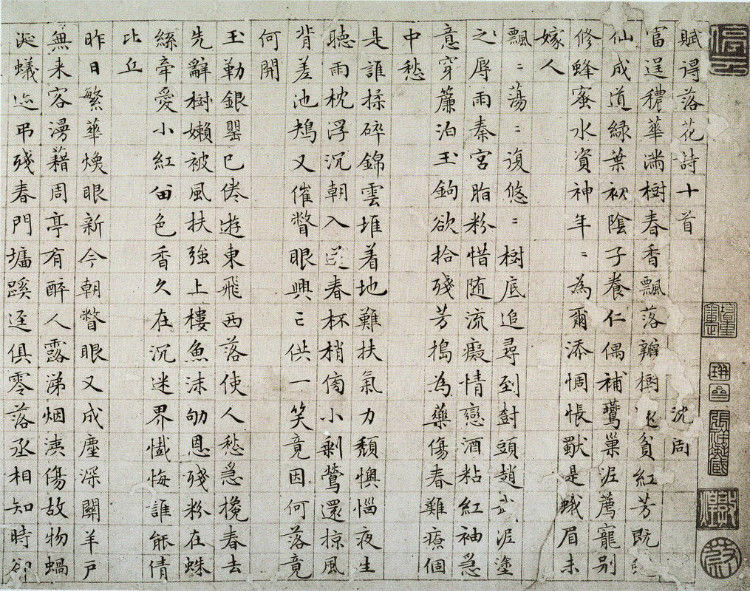 賦得落花詩十首 沈周
富逞穠華滿樹春香飄落瓣樹貧紅芳既
仙成道綠葉初陰子養仁偶補鶯巢泥薦寵別
修蜂蜜水資神年〻為爾添惆悵獸是蛾眉未
嫁人
飄〻蕩〻復悠〻樹底追尋到樹頭趙武泥塗
之辱雨秦宮脂粉惜隨流癡情戀酒粘紅袖急
意穿簾泊玉鉤欲拾殘芳搗為藥傷春難療個
中愁
是誰揉碎錦雲堆着地難扶氣力頹懊惱夜生
聽雨枕浮沉朝入送春杯梢傍小剩鶯還掠風
背差池鴂又催瞥眼興亡供一笑竟因何落竟
何開
玉勒銀罌已倦遊東飛西落使人愁急攙春去
先辭樹嬾被風扶強上樓魚沫劬恩殘粉在蛛
絲牽愛小紅留色香久在沉迷界懺悔誰能倩
比丘
昨日繁華煥眼新今朝瞥眼又成塵深關羊戶
無来客漫藉周亭有醉人露涕烟洟傷故物蝸
涎蟻迹弔殘春門墻蹊逕俱零落丞相知時卻